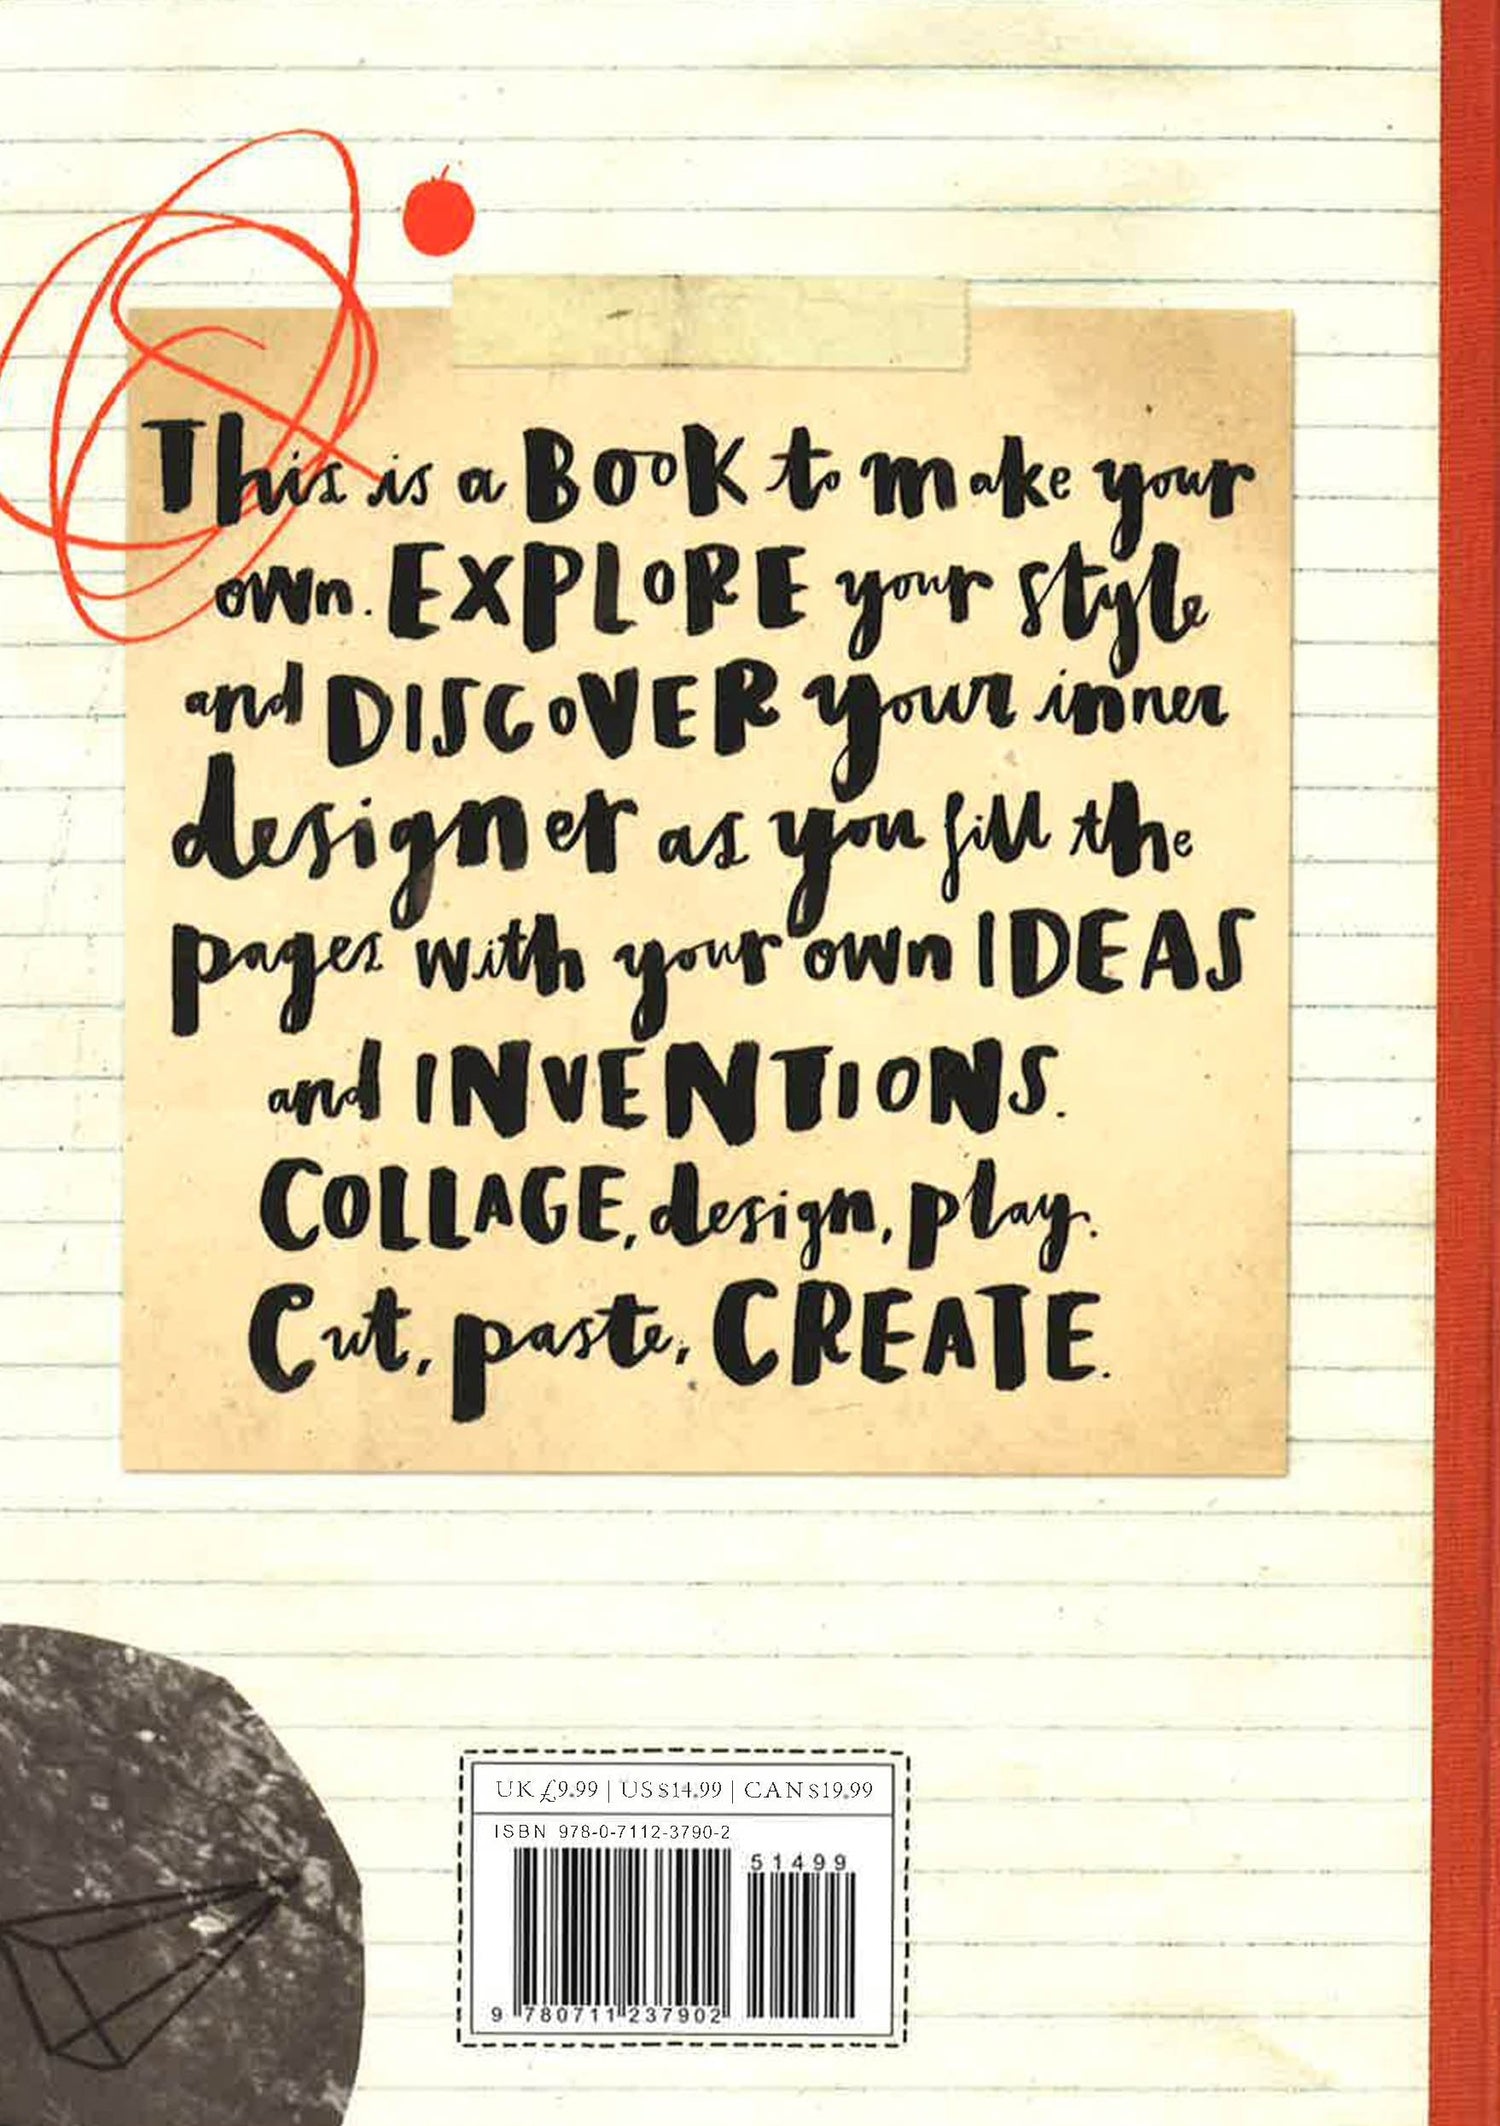 This is a BOOK to make your
own. EXPLORE your style
and DISCOVER your inner
designer as you fill the
pages with your own IDEAS
and INVENTIONS.
COLLAGE, design, play.
Cut, paste, CREATE.
UK £9.99 | US $14.99 | CAN $19.99
ISBN 978-0-7112-3790-2
51499
9 780711 237902